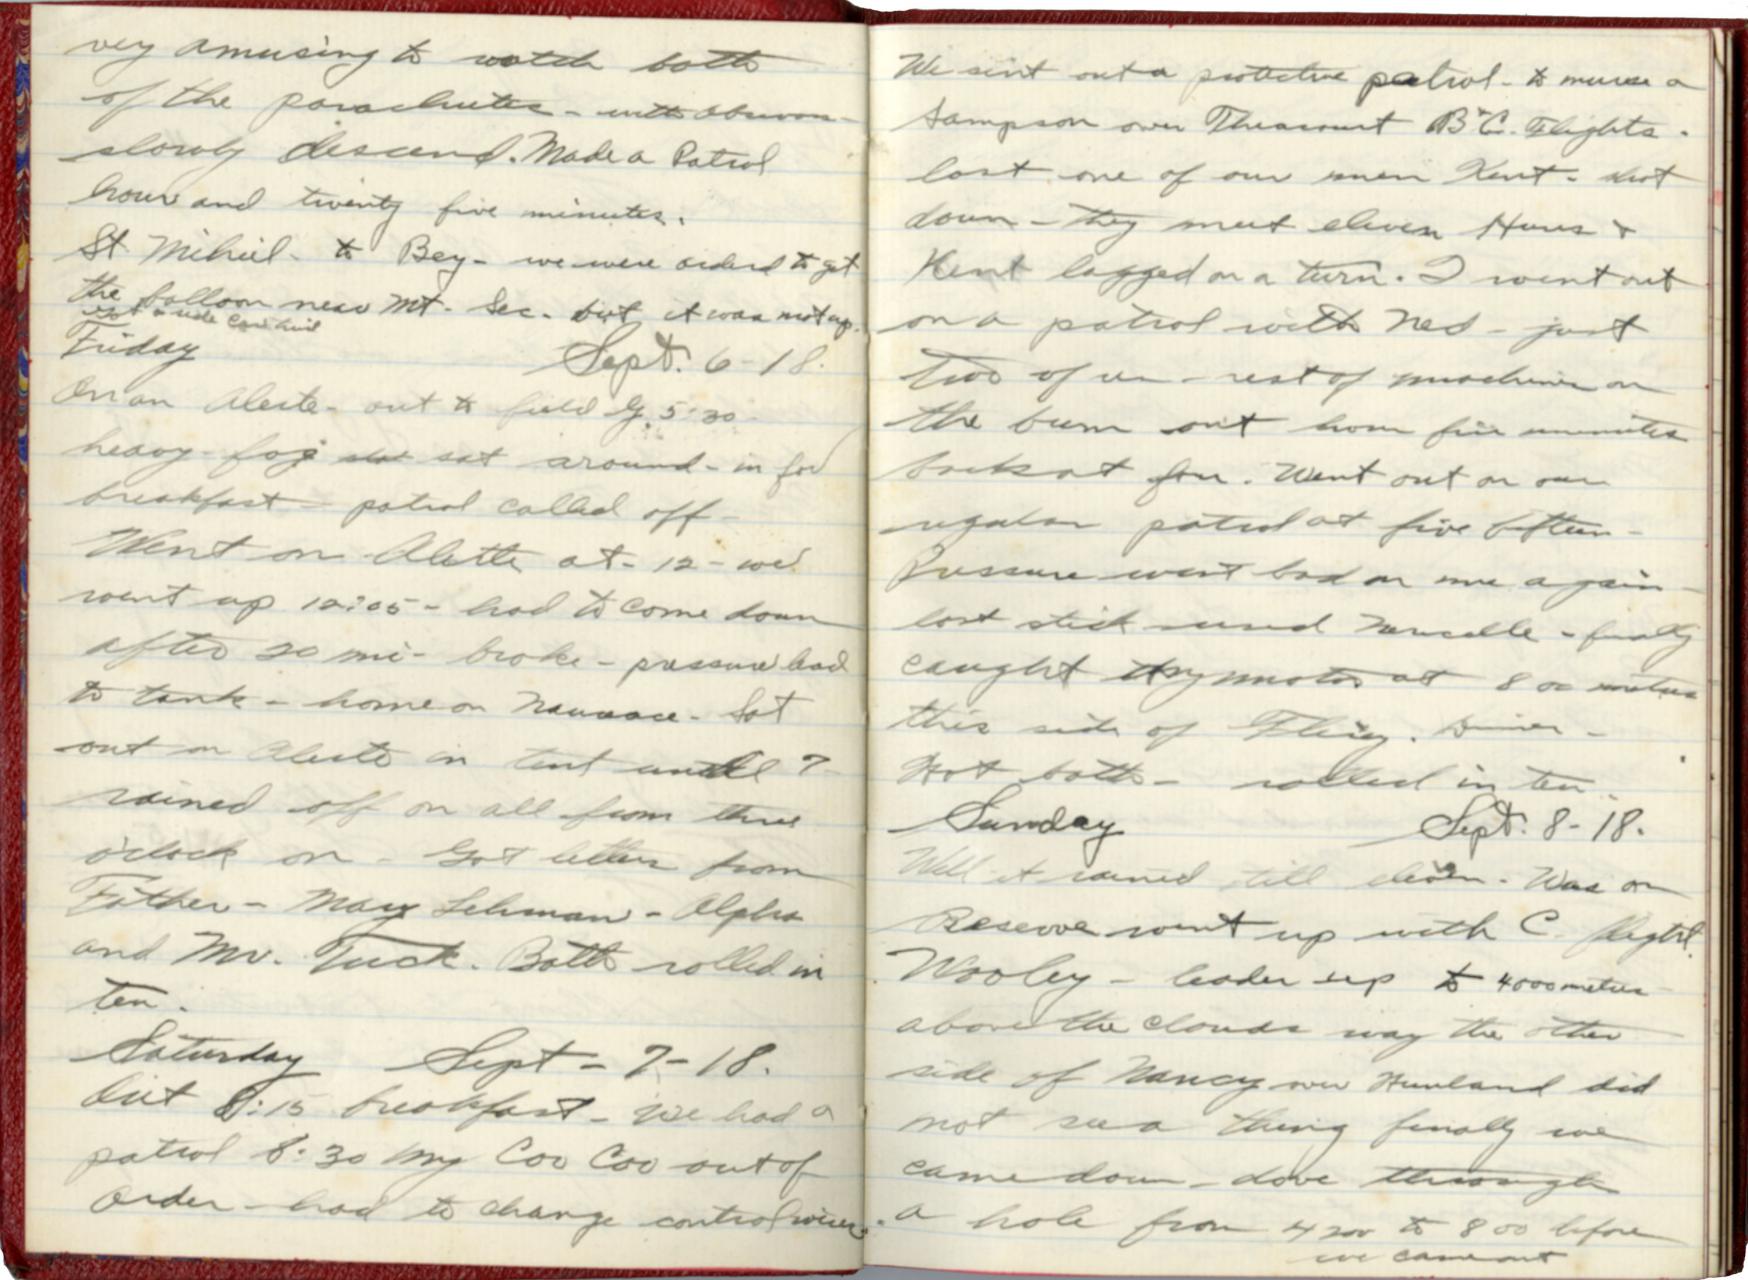 very amusing to watch both
of the parachutes - with observers
slowly descend. Made a Patrol
hour and twenty five minutes.
St Mihiel - to Bey - we were orderd to get
the balloon near Mt. Sec. but it was not up.
Friday Sept. 6-18.
On an Alerte - out to field by 5:30
heavy fog sat around - in for
breakfast - patrol called off -
Went on Alerte at - 12 - we
went up 12:05 - had to come down
after 20 mi - broke - pressure lead
to tank - home on - Sat
out on Alerte in tent until 7
rained off on all from three
o'clock on - Got letters from
Father - Mary Lehman - Alpha
and Mr. Tuck. Bath rolled in
ten.
Saturday Sept - 7-18.
Out 8:15 breakfast - We had a
patrol 8:30 my Coo Coo out of
order - had to change control wires.
We sent out a protective patrol - to a
Sampson over Thiaucourt B & C. Flights -
lost one of our men Kent - shot
down - they meet eleven Huns &
Kent lagged on a turn. I went out
on a patrol with Ned - just
two of us - rest of machines on
the bum out hour five minutes
back at four. Went out on our
regular patrol at five fifteen -
Pressure went bad on me again -
lost stick used - finally
caught my motor at 800 metres
this side of . Dinner -
Hot bath - rolled in ten.
Sunday Sept. 8-18.
Well it rained till eleven. Was on
Reserve went up with C. flight
Wooley - leader up to 4000 metres
above the clouds way the other
side of Nancy over Hunland did
not see a thing finally we
came down - dove through
a hole from 4200 to 800 before
we came out